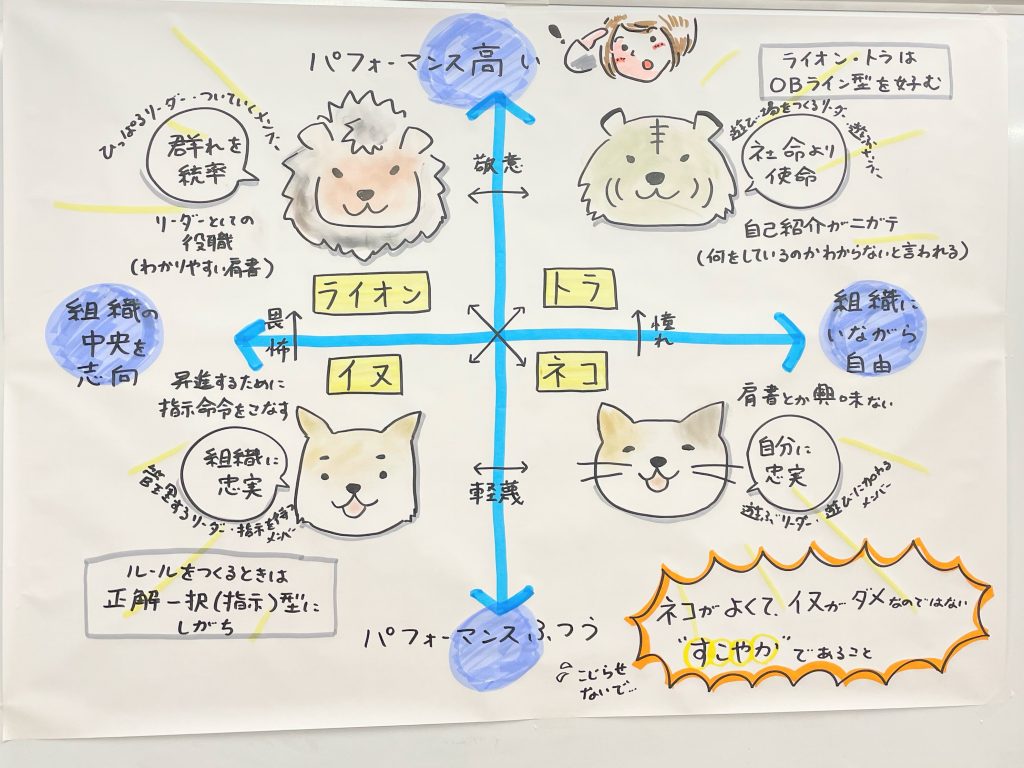 パフォーマンス高い
ライオン・トラは
OBライン型を好む
ひっぱるリーダー・ついていくメンバー
群れを
統率
リーダーとしての
役職
(わかりやすい肩書)
敬意
遊び場をつくるリーダー・遊ぶメンバー
社命より
使命
自己紹介がニガテ
(何をしているのかわからないと言われる)
ライオン
トラ
組織の
中央を
志向
畏怖
憧れ
組織に
いながら
自由
イヌ
ネコ
昇進するために
指示命令をこなす
組織に
忠実
管理するリーダー・指示を待つ
メンバー
軽蔑
肩書とか興味ない
自分に
忠実
遊ぶリーダー・遊びに加わる
メンバー
ルールをつくるときは
正解一択(指示)型に
しがち
パフォーマンスふつう
ネコがよくて、イヌがダメなのではない
"すこやか"であること
こじらせ
ないで…